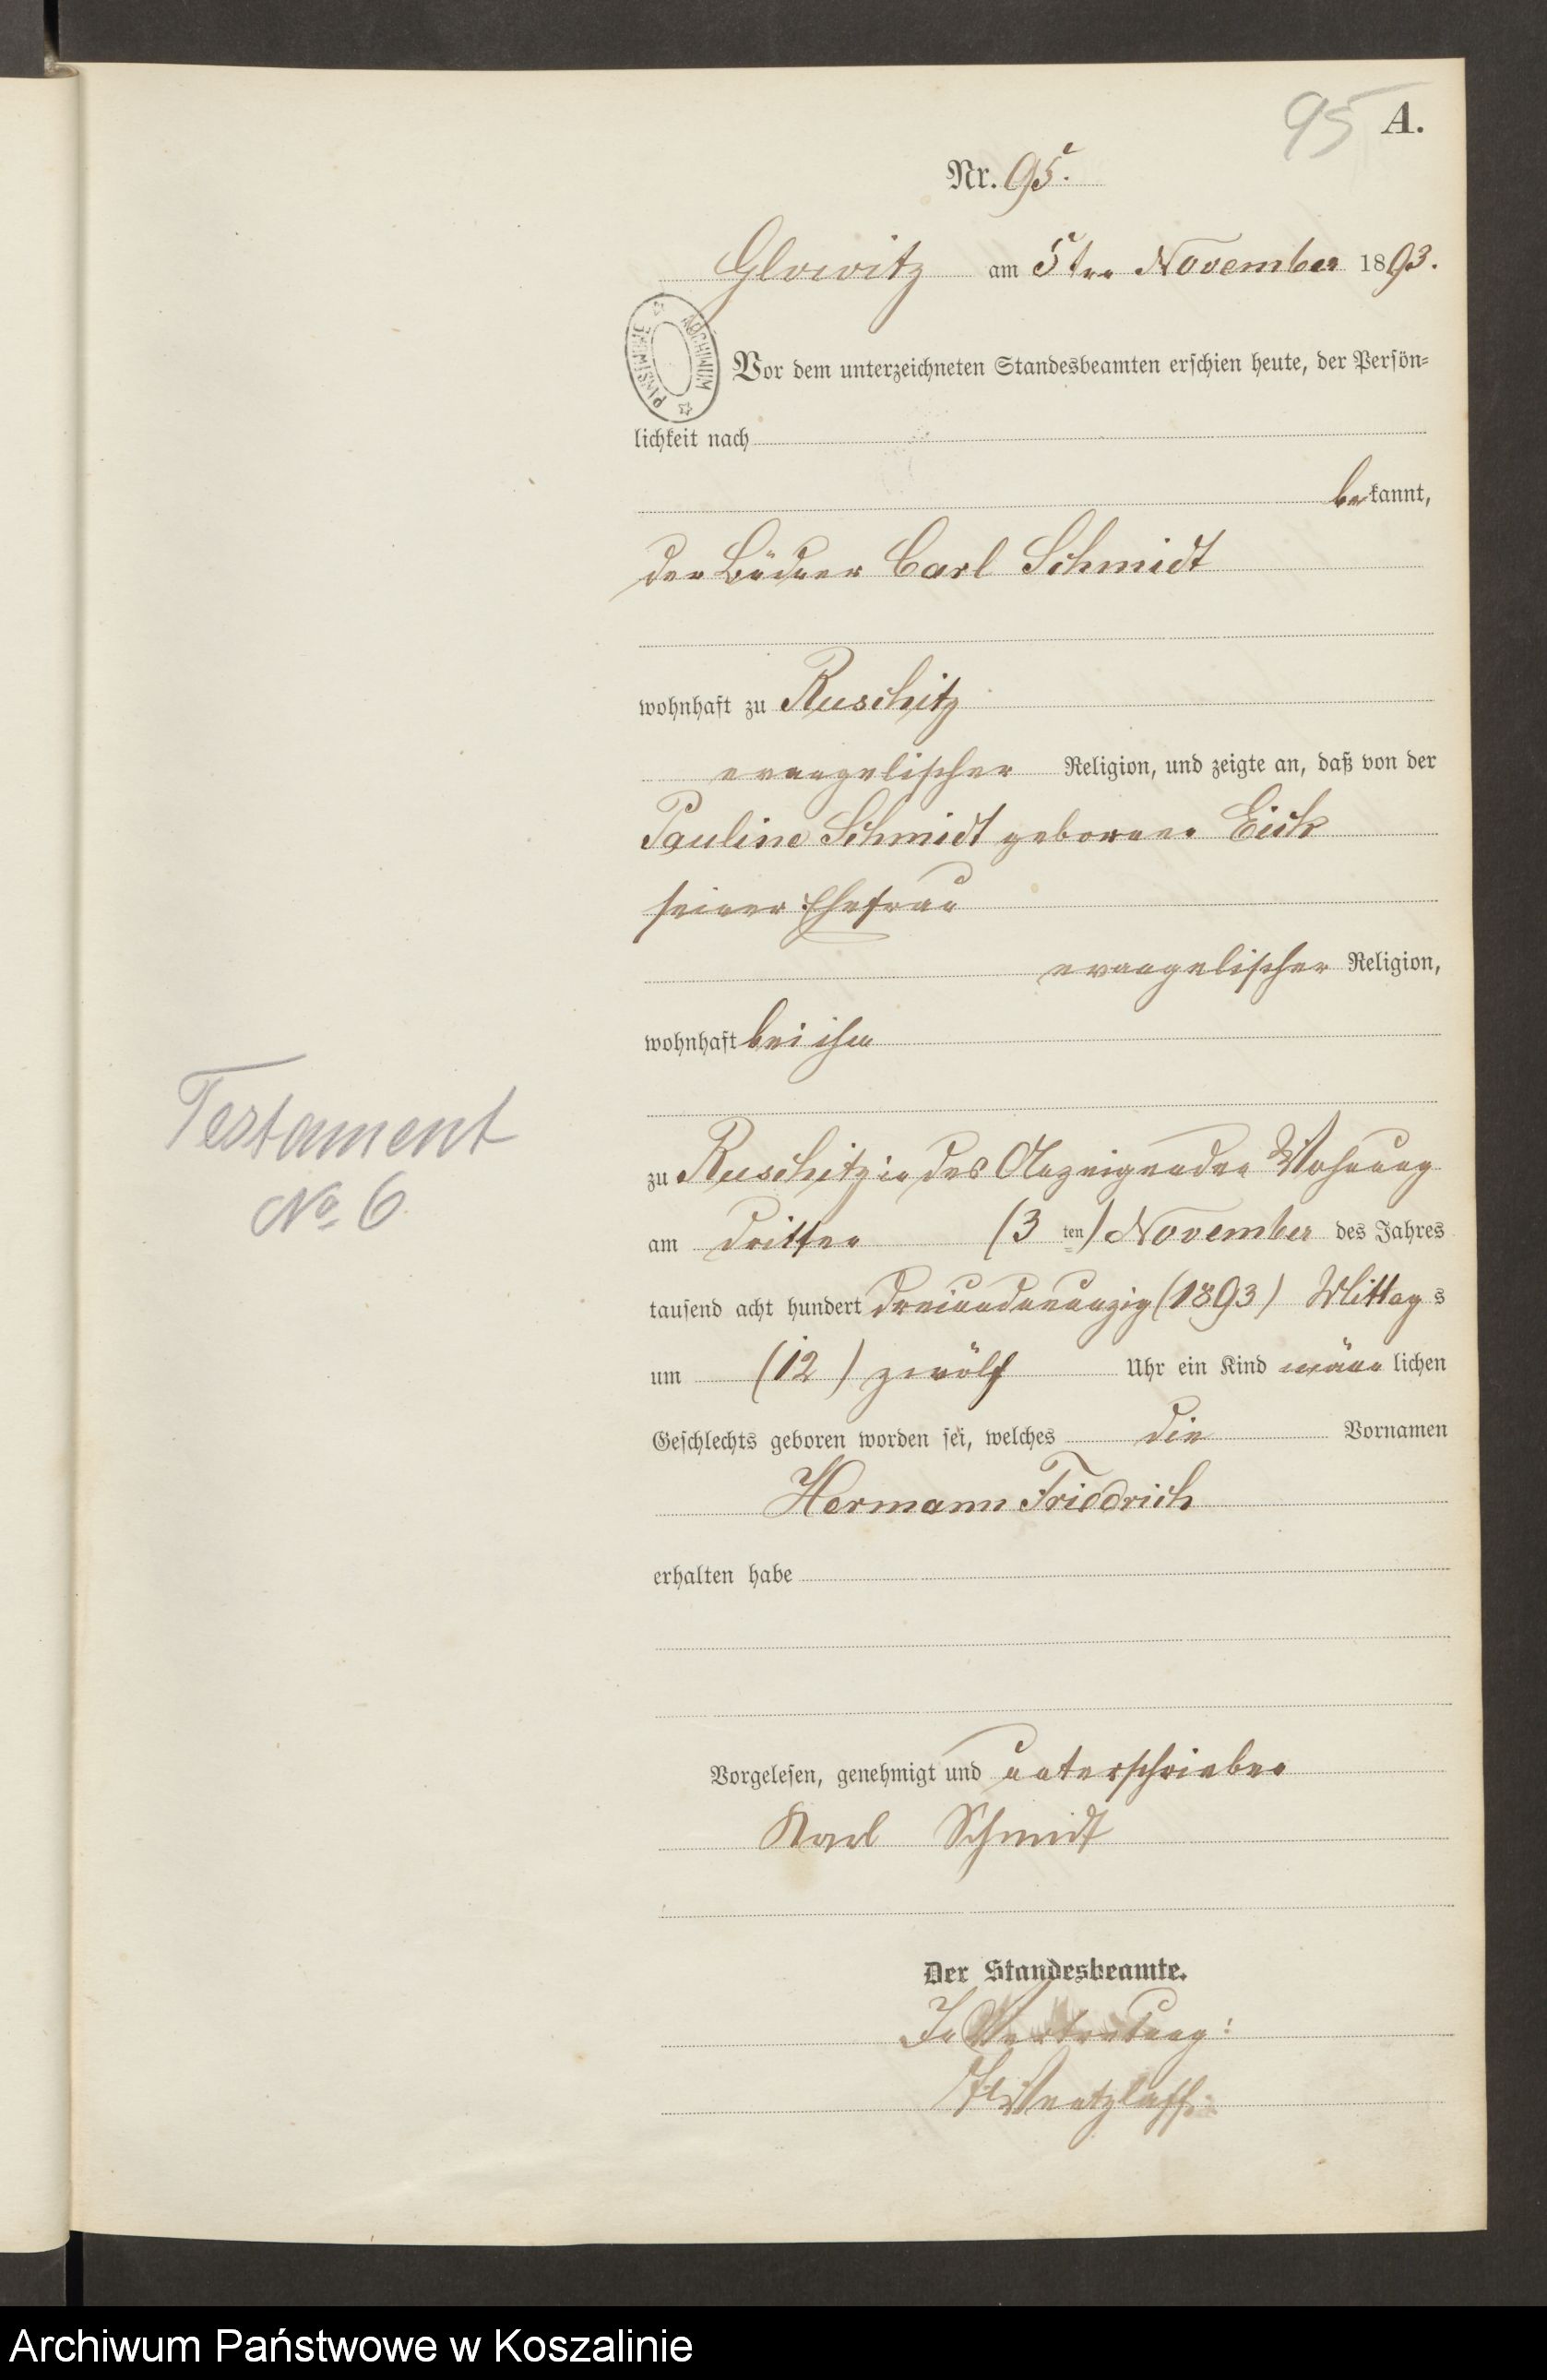 95 A.
Nr. 95.
Glowitz am 5ten November 1893.
ARCHIWUM PAŃSTWOWE
Vor dem unterzeichneten Standesbeamten erschien heute, der Persön-
lichkeit nach
bekannt,
der Büdner Carl Schmidt
wohnhaft zu Ruschitz
evangelischer Religion, und zeigte an, daß von der
Pauline Schmidt geborene Eick
seiner Ehefrau
evangelischer Religion,
wohnhaft bei ihm
Testament
No. 6
zu Ruschitz in des Anzeigenden Wohnung
am dritten (3 ten) November des Jahres
tausend acht hundert dreiundneunzig (1893) Mittags
um (12) zwölf Uhr ein Kind männlichen
Geschlechts geboren worden sei, welches die Vornamen
Hermann Friedrich
erhalten habe
Vorgelesen, genehmigt und unterschrieben
Karl Schmidt
Der Standesbeamte.
In Vertretung:
Wentzlaff.
Archiwum Państwowe w Koszalinie